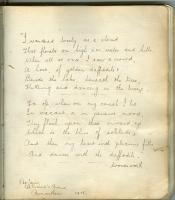 "I wandered lonely as a cloud
That floats on high o'er vales and hills
When all at once I saw a crowd,
A host of golden daffodils
Beside the lake, beneath the trees
Fluttering and dancing in the breeze.
For oft when on my couch I lie
In vacant or in pensive mood,
They flash upon that inward eye
Which is the bliss of solitude
And then my heart with pleasure fills
And dances with the daffodils.
Wordsworth